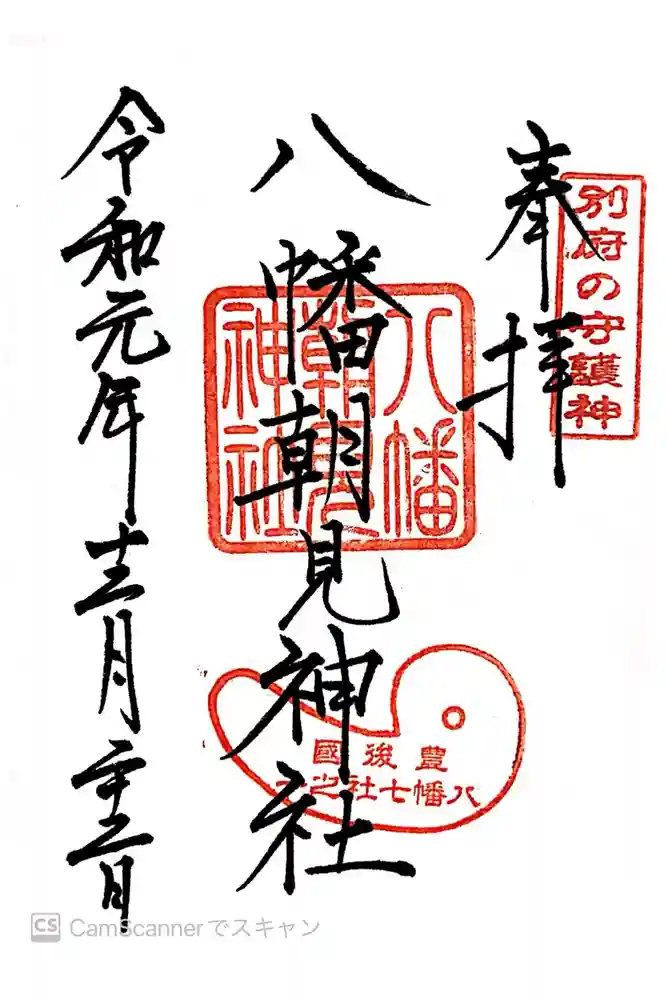 別府の守護神
奉拝
八幡朝見神社
八幡朝見神社
豊後國
八幡七社之一
令和元年十二月二十二日
CS CamScannerでスキャン